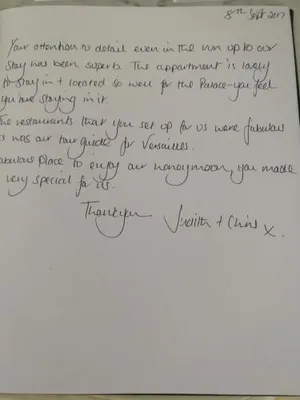 8th Sept 2017
Your attention to detail even in the run up to our
stay has been superb. The appartment is lovely
to stay in + located so well for the Palace - you feel
you are staying in it.
The restaurants that you set up for us were fabulous
as was our tour guide for Versailles.
abulous place to enjoy our honeymoon, you made
very special for us.
Thankyou
Judith + Chris x.